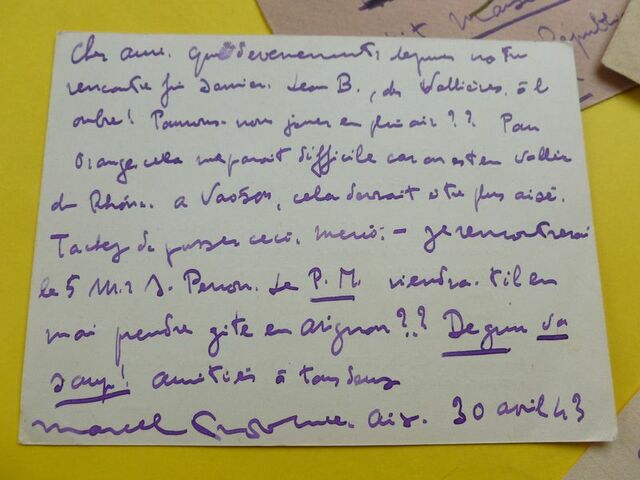 Cher ami. Que d'evenements depuis notre
rencontre fin Janvier. Leon B., des Vallieres, à l'
ombre! Pourrons-nous jouer en plein air?? Pour
Orange cela me parait difficile car on est en Vallée
du Rhône. A Vaison, cela devrait être plus aisé.
Tachez de passer ceci. Merci. – Je rencontrerai
le 5 Mr J. Perron. Le P.M. viendra-t-il en
mai prendre gite en Avignon??
amitiés à tous deux
Marcel Aix. 30 avril 43
Mais
Républi